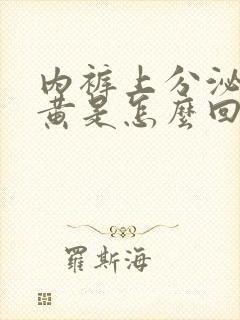 内裤上分泌
黄是怎麼回
羅斯海